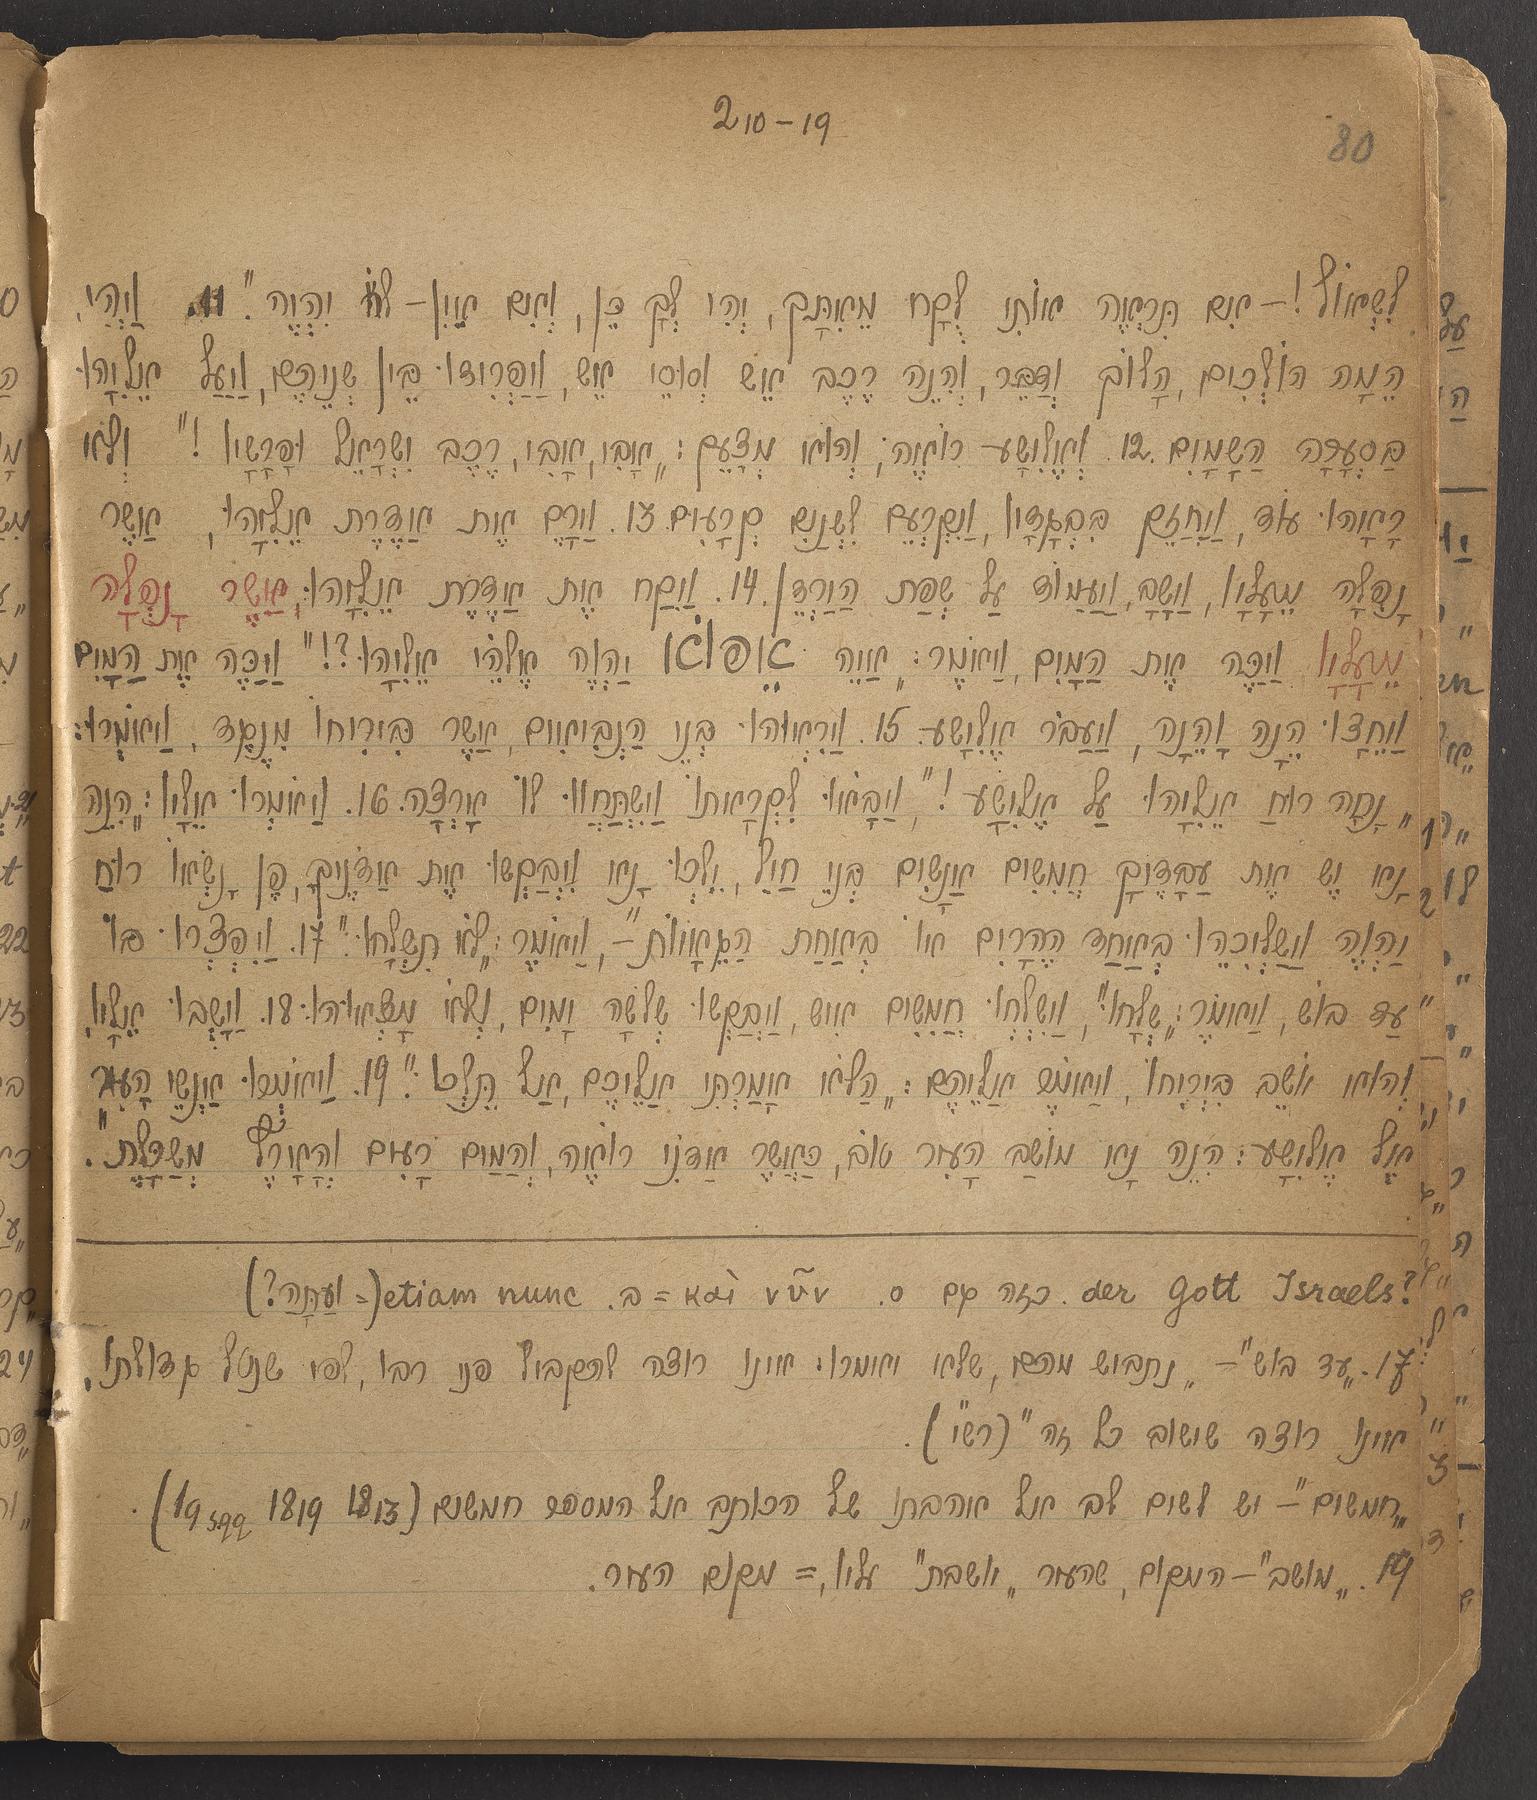 2 10-19
80
לִשְׁאוֹל! – אִם תִּרְאֶה אוֹתִי לֻקָּח מֵאִתָּךְ, יְהִי לְךָ כֵן, וְאִם אַיִן – לֹא יִהְיֶה." 11. וַיְהִי,
הֵמָּה הוֹלְכִים, הָלוֹךְ וְדַבֵּר, וְהִנֵּה רֶכֶב אֵשׁ וְסוּסֵי אֵשׁ, וַיַּפְרִידוּ בֵּין שְׁנֵיהֶם, וַיַּעַל אֵלִיָּהוּ
בַּסְעָרָה הַשָּׁמָיִם. 12. וֶאֱלִישָׁע רוֹאֶה, וְהוּא מְצַעֵק: „אָבִי, אָבִי, רֶכֶב יִשְׂרָאֵל וּפָרָשָׁיו!" וְלֹא
רָאָהוּ עוֹד, וַיַּחֲזֵק בִּבְגָדָיו, וַיִּקְרָעֵם לִשְׁנַיִם קְרָעִים. 13. וַיָּרֶם אֶת אַדֶּרֶת אֵלִיָּהוּ, אֲשֶׁר
נָפְלָה מֵעָלָיו, וַיָּשָׁב, וַיַּעֲמוֹד עַל שְׂפַת הַיַּרְדֵּן. 14. וַיִּקַּח אֶת אַדֶּרֶת אֵלִיָּהוּ, אֲשֶׁר נָפְלָה
מֵעָלָיו וַיַּכֶּה אֶת הַמַּיִם, וַיֹּאמֶר: „אַיֵּה אֵפוֹא יַהְוֶה אֱלֹהֵי אֵלִיָּהוּ?!" וַיַּכֶּה אֶת הַמַּיִם
וַיֵּחָצוּ הֵנָּה וָהֵנָּה, וַיַּעֲבֹר אֱלִישָׁע. 15. וַיִּרְאוּהוּ בְּנֵי הַנְּבִיאִים, אֲשֶׁר בִּירִיחוֹ מִנֶּגֶד, וַיֹּאמְרוּ:
„נָחָה רוּחַ אֵלִיָּהוּ עַל אֱלִישָׁע!", וַיָּבֹאוּ לִקְרָאתוֹ וַיִּשְׁתַּחֲווּ לוֹ אָרְצָה. 16. וַיֹּאמְרוּ אֵלָיו: „הִנֵּה
נָא יֵשׁ אֶת עֲבָדֶיךָ חֲמִשִּׁים אֲנָשִׁים בְּנֵי חַיִל, יֵלְכוּ נָא וִיבַקְשׁוּ אֶת אֲדֹנֶיךָ, פֶּן נְשָׂאוֹ רוּחַ
יַהְוֶה וַיַּשְׁלִיכֵהוּ בְּאַחַד הֶהָרִים אוֹ בְּאַחַת הַגֵּאָיוֹת" –, וַיֹּאמֶר: „לֹא תִשְׁלָחוּ." 17. וַיִּפְצְרוּ בוֹ
„עַד בּוֹשׁ, וַיֹּאמֶר: „שְׁלָחוּ", וַיִּשְׁלְחוּ חֲמִשִּׁים אִישׁ, וַיְבַקְשׁוּ שְׁלֹשָׁה יָמִים, וְלֹא מְצָאוּהוּ. 18. וַיָּשֻׁבוּ אֵלָיו,
וְהוּא יֹשֵׁב בִּירִיחוֹ, וַיֹּאמֶר אֲלֵיהֶם: „הַלֹא אָמַרְתִּי אֲלֵיכֶם, אַל תֵּלְכוּ." 19. וַיֹּאמְרוּ אַנְשֵׁי הָעִיר
אֶל אֱלִישָׁע: הִנֵּה נָא מוֹשַׁב הָעִיר טוֹב, כַּאֲשֶׁר אֲדֹנִי רוֹאֶה, וְהַמַּיִם רָעִים וְהָאָרֶץ מְשַׁכָּלֶת".
der Gott Israels? כזה גם ס. ב. = καὶ νῦν etiam nunc (= וְעַתָּה?)
17. „עד בוש" – „נתבוש מהם, שלא יאמרו: אינו רוצה להקביל פני רבו, לפי שנטל גדולתו,
אינו רוצה שישוב כל זה" (רש"י).
„חמשים" – יש לשום לב אל אהבתו של הכותב אל המספר חמשים (1813 1819 19 sqq).
19. „מושב" – המקום, שהעיר „יושבת" עליו, = מקום העיר.